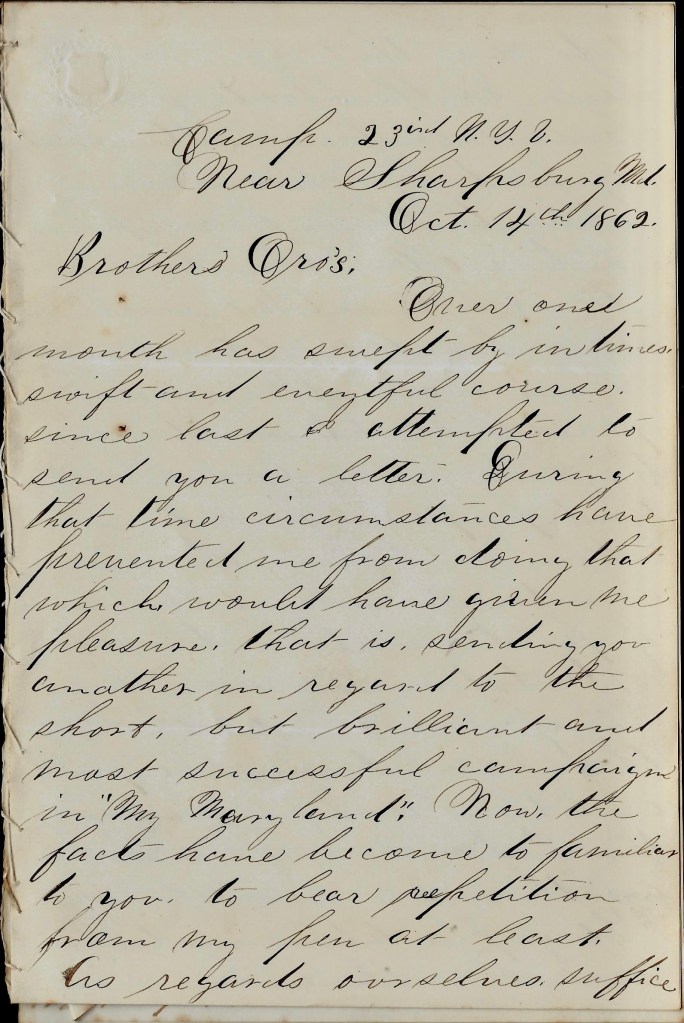 Camp. 23rd N. Y. V.
Near Sharpsburg Md.
Oct. 14th 1862.
Brothers Oro's,
Over one
month has swept by in times.
swift and eventful course.
since last I attempted to
send you a letter. During
that time circumstances have
prevented me from doing that
which would have given me
pleasure. that is. sending you
another in regard to the
short, but brilliant and
most successful campaign
in "My Maryland". Now, the
facts have become to familiar
to you. to bear repetition
from my pen at least.
As regards ourselves. suffice